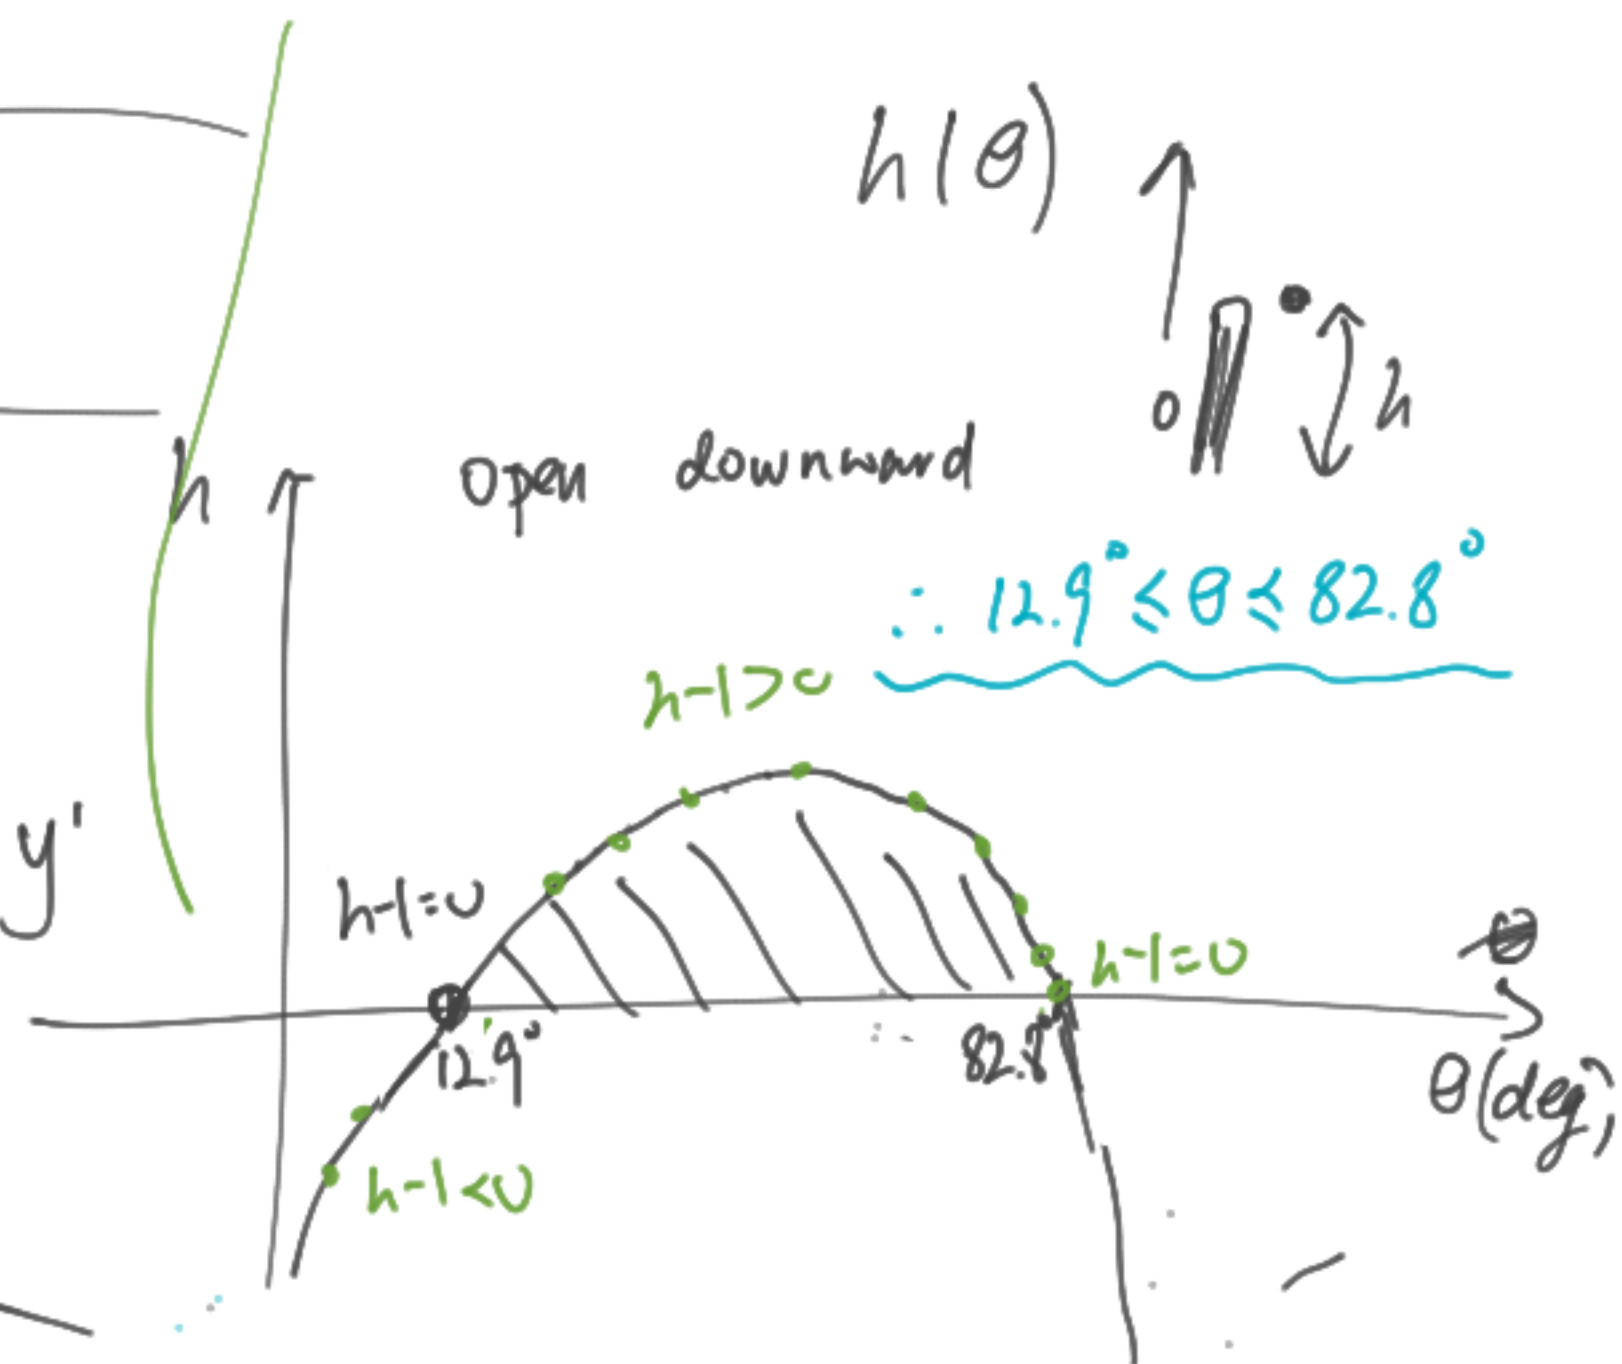 h(θ)
0
h
h
open downward
∴ 12.9° ≤ θ ≤ 82.8°
h-1>0
y'
h-1=0
h-1=0
12.9°
82.8°
θ(deg)
h-1<0